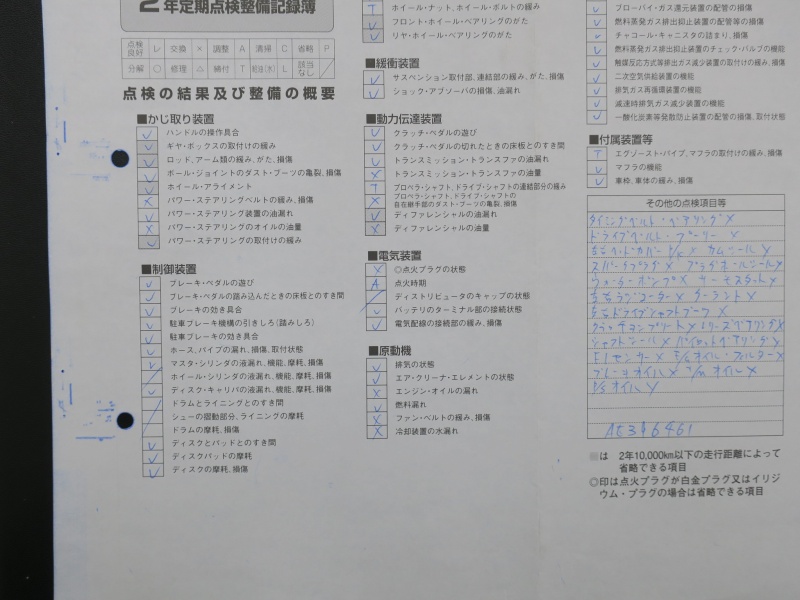 2年定期点検整備記録簿
点検良好 レ 交換 × 調整 A 清掃 C 省略 P
分解 ○ 修理 △ 締付 T 給油(水) L 該当なし ／
点検の結果及び整備の概要
■かじ取り装置
レ ハンドルの操作具合
レ ギヤ・ボックスの取付けの緩み
レ ロッド、アーム類の緩み、がた、損傷
レ ボール・ジョイントのダスト・ブーツの亀裂、損傷
レ ホイール・アライメント
× パワー・ステアリングベルトの緩み、損傷
レ パワー・ステアリング装置の油漏れ
× パワー・ステアリングのオイルの油量
レ パワー・ステアリングの取付けの緩み
■制御装置
レ ブレーキ・ペダルの遊び
レ ブレーキ・ペダルの踏み込んだときの床板とのすき間
レ ブレーキの効き具合
レ 駐車ブレーキ機構の引きしろ(踏みしろ)
レ 駐車ブレーキの効き具合
レ ホース、パイプの漏れ、損傷、取付状態
レ マスタ・シリンダの液漏れ、機能、摩耗、損傷
／ ホイール・シリンダの液漏れ、機能、摩耗、損傷
レ ディスク・キャリパの液漏れ、機能、摩耗、損傷
／ ドラムとライニングとのすき間
／ シューの摺動部分、ライニングの摩耗
／ ドラムの摩耗、損傷
レ ディスクとパッドとのすき間
レ ディスクパッドの摩耗
レ ディスクの摩耗、損傷
T ホイール・ナット、ホイール・ボルトの緩み
レ フロント・ホイール・ベアリングのがた
レ リヤ・ホイール・ベアリングのがた
■緩衝装置
レ サスペンション取付部、連結部の緩み、がた、損傷
レ ショック・アブソーバの損傷、油漏れ
■動力伝達装置
レ クラッチ・ペダルの遊び
レ クラッチ・ペダルの切れたときの床板とのすき間
レ トランスミッション・トランスファの油漏れ
× トランスミッション・トランスファの油量
T プロペラ・シャフト、ドライブ・シャフトの連結部分の緩み
× プロペラ・シャフト、ドライブ・シャフトの
自在継手部のダスト・ブーツの亀裂、損傷
レ ディファレンシャルの油漏れ
× ディファレンシャルの油量
■電気装置
× ◎点火プラグの状態
A 点火時期
／ ディストリビュータのキャップの状態
レ バッテリのターミナル部の接続状態
レ 電気配線の接続部の緩み、損傷
■原動機
レ 排気の状態
レ エア・クリーナ・エレメントの状態
× エンジン・オイルの漏れ
レ 燃料漏れ
× ファン・ベルトの緩み、損傷
× 冷却装置の水漏れ
レ ブローバイ・ガス還元装置の配管の損傷
レ 燃料蒸発ガス排出抑止装置の配管等の損傷
レ チャコール・キャニスタの詰まり、損傷
レ 燃料蒸発ガス排出抑止装置のチェック・バルブの機能
レ 触媒反応方式等排出ガス減少装置の取付けの緩み、損傷
レ 二次空気供給装置の機能
レ 排気ガス再循環装置の機能
レ 減速時排気ガス減少装置の機能
レ 一酸化炭素等発散防止装置の配管の損傷、取付状態
■付属装置等
T エグゾースト・パイプ、マフラの取付けの緩み、損傷
レ マフラの機能
レ 車枠、車体の緩み、損傷
その他の点検項目等
タイミングベルト・ベアリング×
ドライブベルト・プーリー ×
ヘッドカバー P/K× カムシール×
スパークプラグ× プラグホールシール×
ウォーターポンプ× サーモスタート×
ラジエーター× クーラント×
左右ドライブシャフトブーツ ×
クラッチコンプリート× レリーズベアリング×
シャフトシール× パイロットベアリング×
センサー× E/オイル・フィルター×
ブレーキオイル× T/M オイル×
P/S オイル×
は 2年10,000km以下の走行距離によって
省略できる項目
◎印は点火プラグが白金プラグ又はイリジ
ウム・プラグの場合は省略できる項目